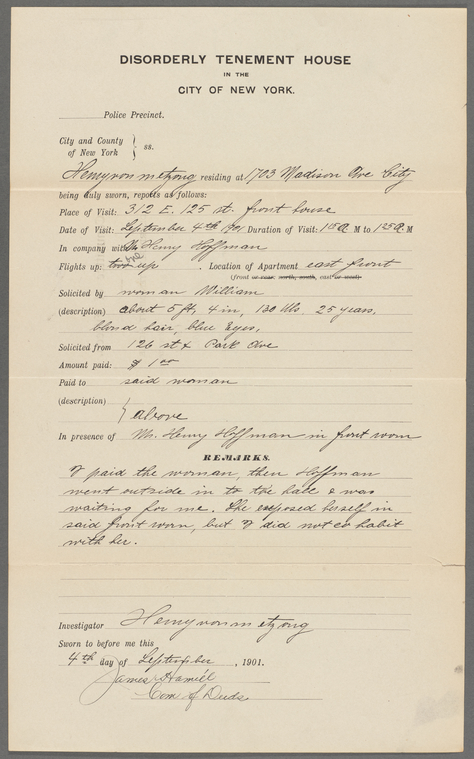 DISORDERLY TENEMENT HOUSE
IN THE
CITY OF NEW YORK.
Police Precinct.
City and County
of New York } ss.
Henry von metzong residing at 1703 Madison Ave City
being duly sworn, reports as follows:
Place of Visit: 312 E. 125 st. front house
Date of Visit: September 4th 1901 Duration of Visit: 1 15 A. M to 1 25 A. M
In company with Mr Henry Hoffman
Flights up: two one up . Location of Apartment east front
(front or rear, north, south, east or west)
Solicited by woman William
(description) about 5 ft, 4 in, 130 lbs, 25 years,
blond hair, blue Eyes,
Solicited from 126 st & Park Ave
Amount paid: $ 1 00
Paid to said woman
(description)
} above
In presence of Mr. Henry Hoffman in front room
REMARKS.
I paid the woman, then Hoffman
went outside in to the hall & was
waiting for me. She exposed herself in
said front room, but I did not co habit
with her.
Investigator Henry von metzong
Sworn to before me this
4th day of September , 1901.
James Hamill
Com of Deeds